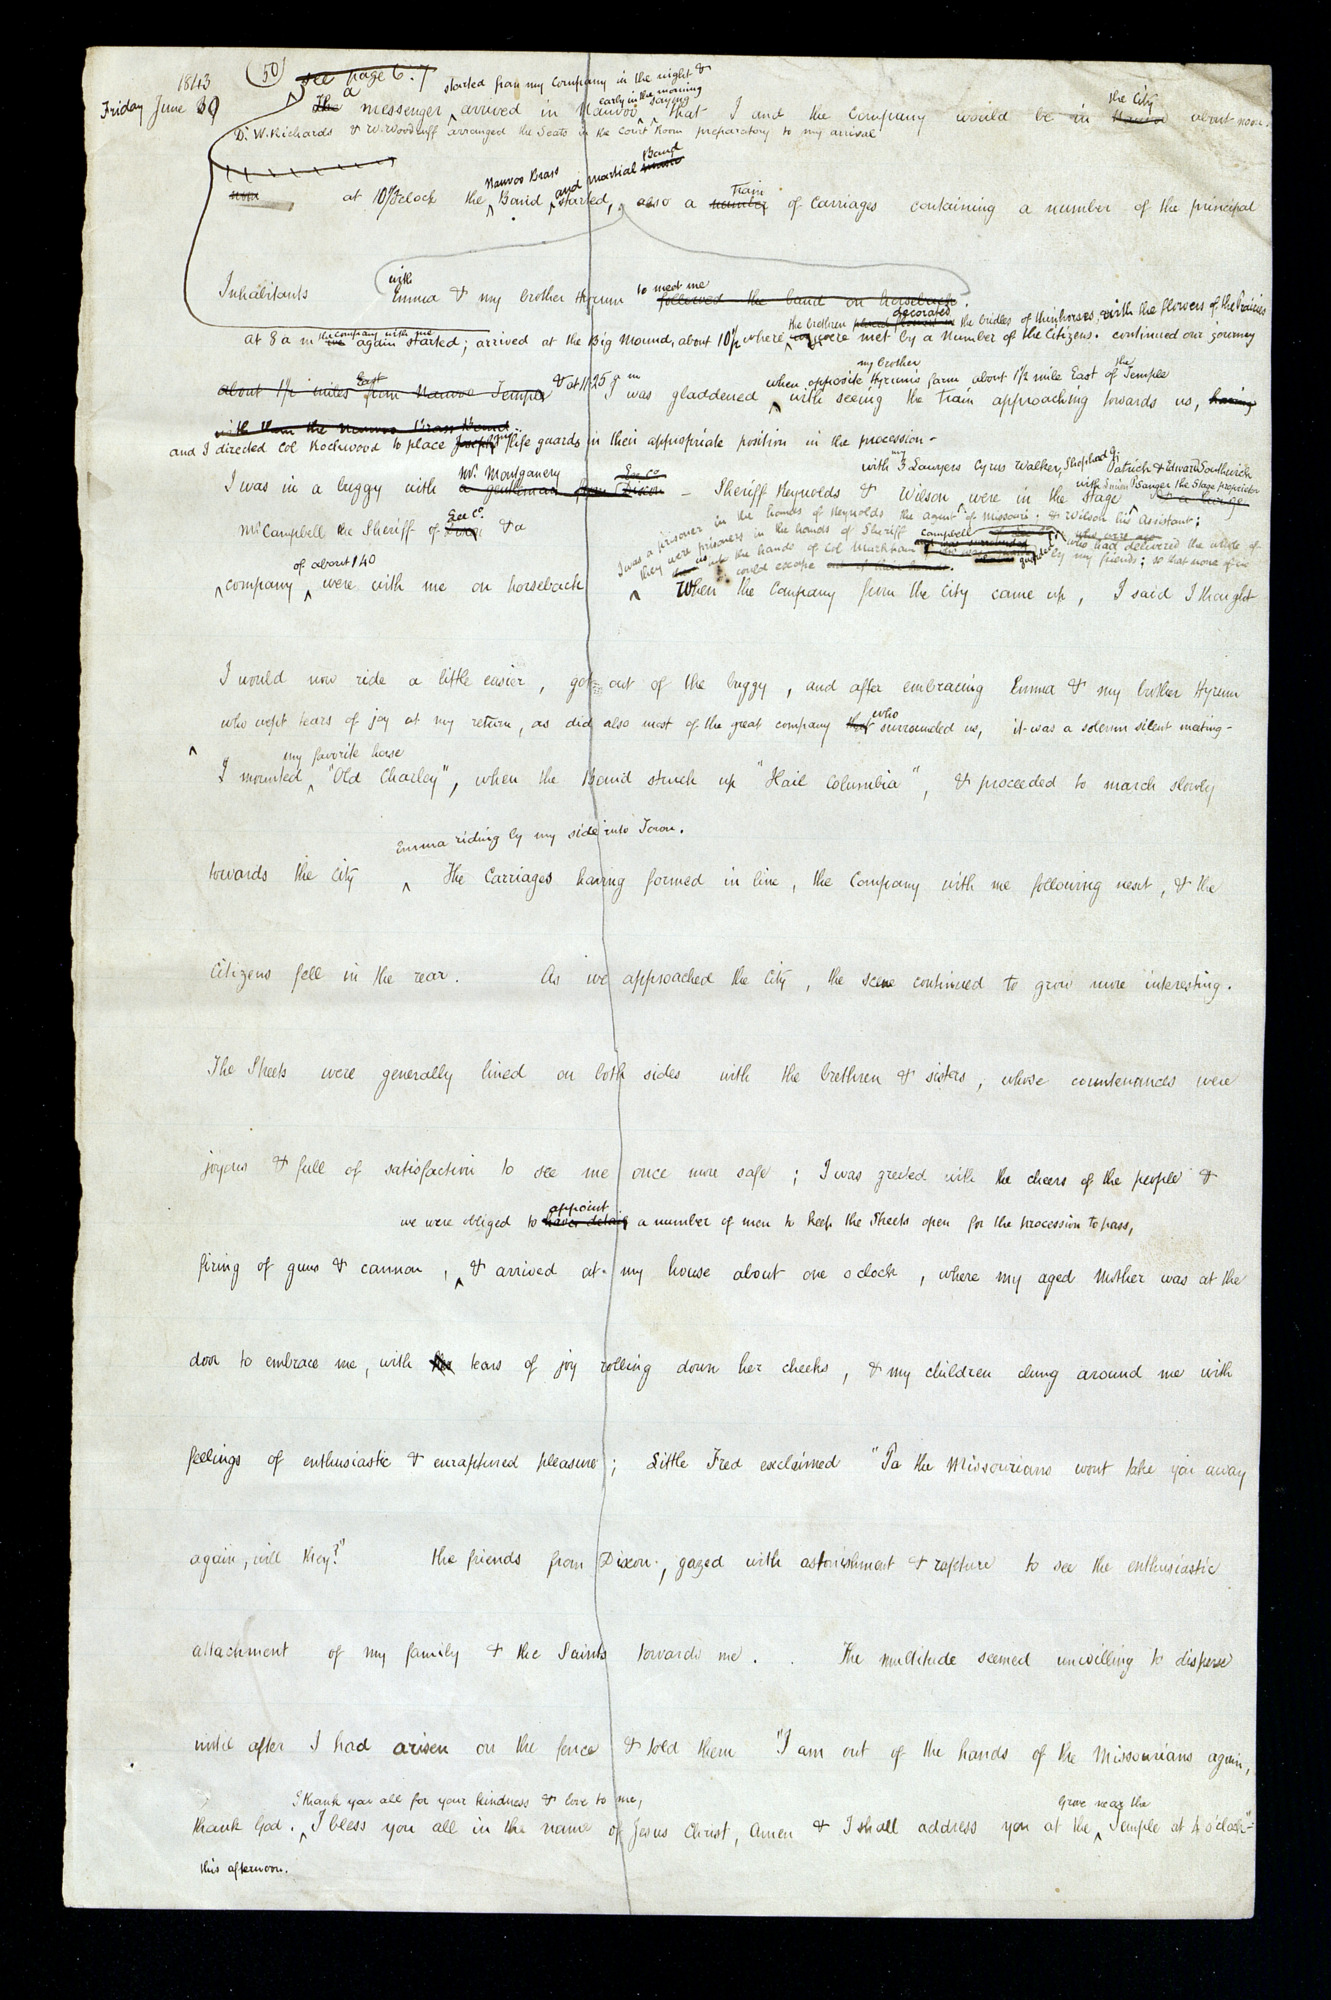 1843 (50) see page 6. 7 started from my Company in the night &
Friday June 30 The a messenger arrived in Nauvoo early in the morning saying that I and the Company would be in Nauvoo the City about noon.
Dr. W. Richards & W. Woodruff arranged the Seats in the Court Room preparatory to my arrival
noon at 10½ oclock the Nauvoo Brass Band and martial music Band started, also a number train of carriages containing a number of the principal
Inhabitants with Emma & my brother Hyrum to meet me followed the band on horseback.
the brethren placed flowers in decorated the bridles of their horses, with the flowers of the Prairies
at 8 a m the company with me again started; arrived at the Big Mound, about 10½ where we were met by a number of the Citizens. continued our journey
about 1½ miles East from Nauvoo Temple & at 11.25 a m I was gladdened when opposite my brother Hyrum's farm about 1½ mile East of the Temple with seeing the train approaching towards us, having
with them the Nauvoo Brass Band
and I directed Col Rockwood to place Joseph's my life guards in their appropriate position in the procession-
I was in a buggy with a gentleman from Dixon Mr. Montgomery Lee Co - Sheriff Reynolds & Wilson with my 3 Lawyers Cyrus Walker, Shepherd G. Patrick & Edward Southwick were in the stage with Sanger the Stage proprietor & a barge
McCampbell the Sheriff of Dixon Lee Co. & a
I was a prisoner in the hands of Reynolds the agent of Missouri; & Wilson his Assistant;
they were prisoners in the hands of Sheriff Campbell who had delivered the whole of
us into the hands of Col Markham guarded by my friends; so that none of us
could escape
company of about 140 were with me on horseback When the Company from the City came up, I said I thought
I would now ride a little easier, got out of the buggy, and after embracing Emma & my brother Hyrum
who wept tears of joy at my return, as did also most of the great company that who surrounded us, it was a solemn silent meeting-
I mounted my favorite horse "Old Charley", when the Band struck up "Hail Columbia", & proceeded to march slowly
Emma riding by my side into Town.
towards the City The Carriages having formed in line, the Company with me following next, & the
Citizens fell in the rear. As we approached the City, the scene continued to grow more interesting.
The Streets were generally lined on both sides with the brethren & sisters, whose countenances were
joyous & full of satisfaction to see me once more safe; I was greeted with the cheers of the people &
we were obliged to have detail appoint a number of men to keep the Streets open for the procession to pass,
firing of guns & cannon, & arrived at my house about one oclock, where my aged Mother was at the
door to embrace me, with tears of joy rolling down her cheeks, & my children clung around me with
feelings of enthusiastic & enraptured pleasure; Little Fred exclaimed "Pa the Missourians wont take you away
again, will they?" the friends from Dixon, gazed with astonishment & rapture to see the enthusiastic
attachment of my family & the Saints towards me. . The multitude seemed unwilling to disperse
until after I had arisen on the fence & told them "I am out of the hands of the Missourians again,
I thank you all for your kindness & love to me, Grove near the
thank God. I bless you all in the name of Jesus Christ, Amen & I shall address you at the Temple at 4 o'clock"
this afternoon.